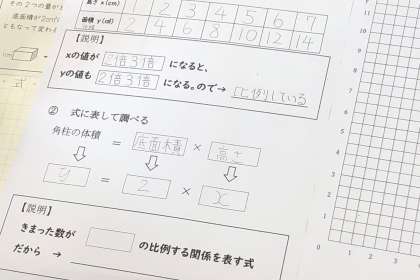 その２つの量が
底面積が2cm²
にともなって変わ
高さ x (cm) 1 2 3 4 5 6 7
面積 y (㎠) 2 4 6 8 10 12 14
【説明】
xの値が 2倍3倍 になると、
yの値も 2倍3倍 になる。ので→ 比例している
② 式に表して調べる
角柱の体積 ＝ 底面積 × 高さ
y ＝ 2 × x
【説明】
きまった数が の比例する関係を表す式
だから →
式
11
10
9
8
7
6
5
4
3
2
1
0 1 2 3